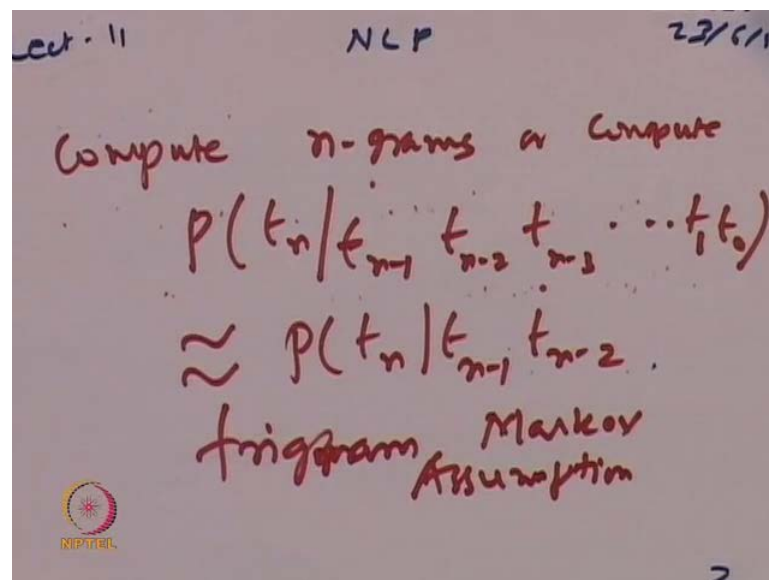 Lect. 11 NLP 23/6/1
Compute n-grams or Compute
P(tₙ|tₙ₋₁ tₙ₋₂ tₙ₋₃ ... t₁t₀)
≈ P(tₙ|tₙ₋₁ tₙ₋₂.
trigram Markov
Assumption
NPTEL
2